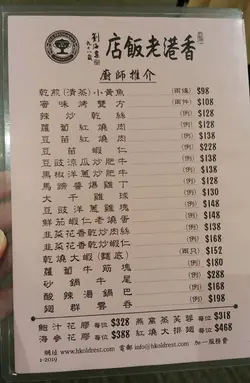 香港老飯店
廚師推介
乾煎(清蒸)小黃魚 (兩條) $98
蜜味烤雙方 (兩件) $108
辣炒乾絲 (例) $128
蘿蔔紅燒肉 (例) $138
豆苗紅燒肉 (例) $138
豆苗蝦仁 (例) $168
豆豉涼瓜炒肥牛 (例) $128
黑椒洋蔥炒肥牛 (例) $128
馬蹄醬爆雞丁 (例) $128
大千雞球 (例) $138
豆豉洋蔥雞塊 (例) $138
鮮茄蝦仁老燒蛋 (例) $148
韭菜花香乾炒肉絲 (例) $148
韭菜花香乾炒蝦仁 (例) $168
乾燒大蝦(麵底) (兩只) $152
蘿蔔牛筋塊 (例) $180
砂鍋牛尾 (例) $288
酸辣湯鍋巴 (例) $168
翅群雲吞 (例) $188
鮑汁花膠 每位 $328 燕窩芙蓉 每位 $318
海參花膠 每位 $388 紅燒大排翅 每位 $468
網址 www.hkoldrest.com 電郵 info@hkoldrest.com 加一服務費
1-2019